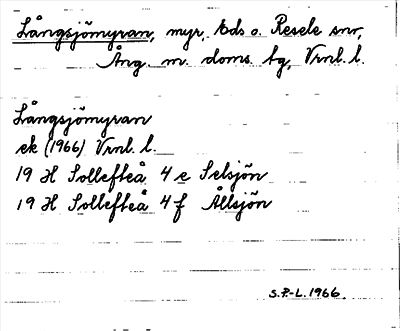 Långsjömyran, myr, Eds o. Resele snr,
Ång. m. doms. lg, Vrnl. l.
Långsjömyran
ek (1966) Vrnl. l.
19 H Sollefteå 4 e Selsjön
19 H Sollefteå 4 f Ållsjön
S.P.-L. 1966.